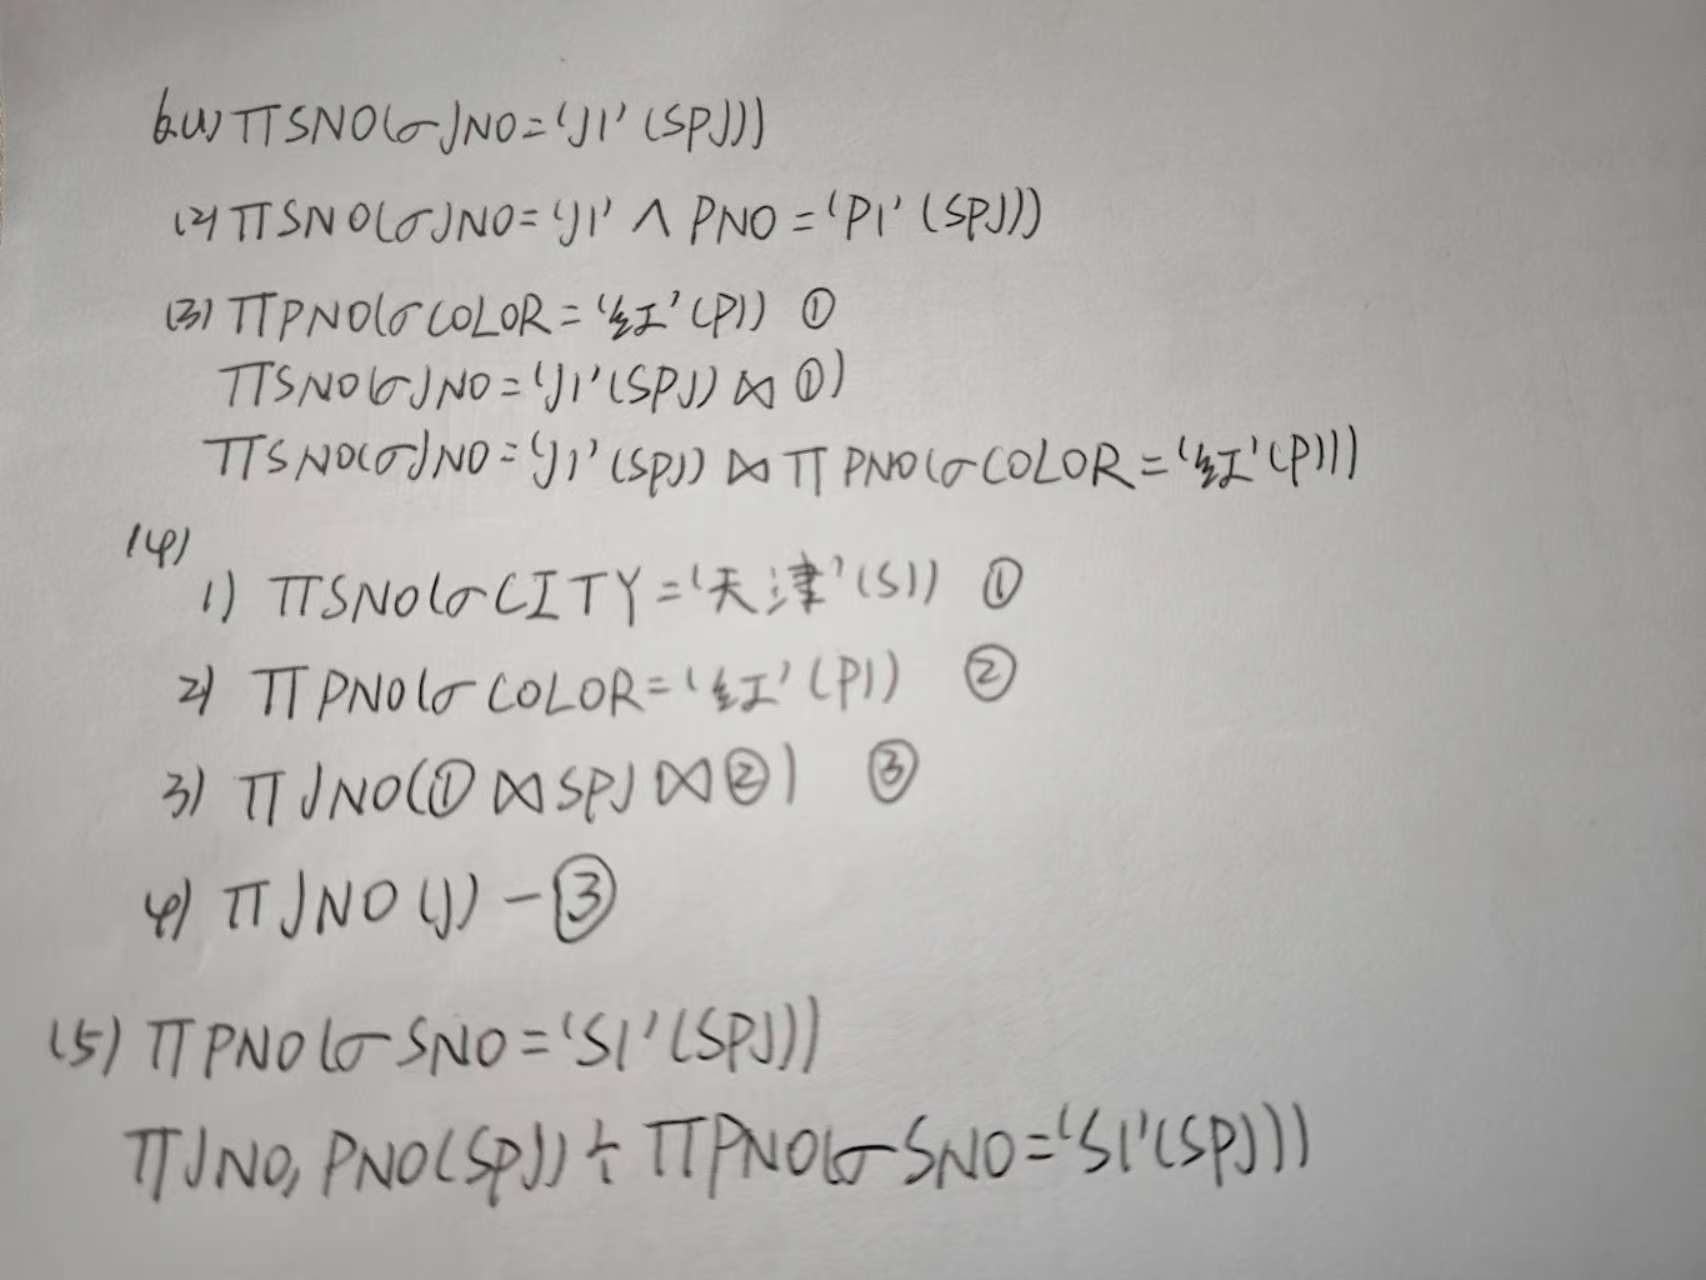 6.(1) πSNO(σJNO='J1'(SPJ))
(2) πSNO(σJNO='J1' ∧ PNO='P1'(SPJ))
(3) πPNO(σCOLOR='红'(P)) ①
πSNO(σJNO='J1'(SPJ) ⋈ ①)
πSNO(σJNO='J1'(SPJ) ⋈ πPNO(σCOLOR='红'(P)))
(4)
1) πSNO(σCITY='天津'(S)) ①
2) πPNO(σCOLOR='红'(P)) ②
3) πJNO(① ⋈ SPJ ⋈ ②) ③
4) πJNO(J) - ③
(5) πPNO(σSNO='S1'(SPJ))
πJNO, PNO(SPJ) ÷ πPNO(σSNO='S1'(SPJ))